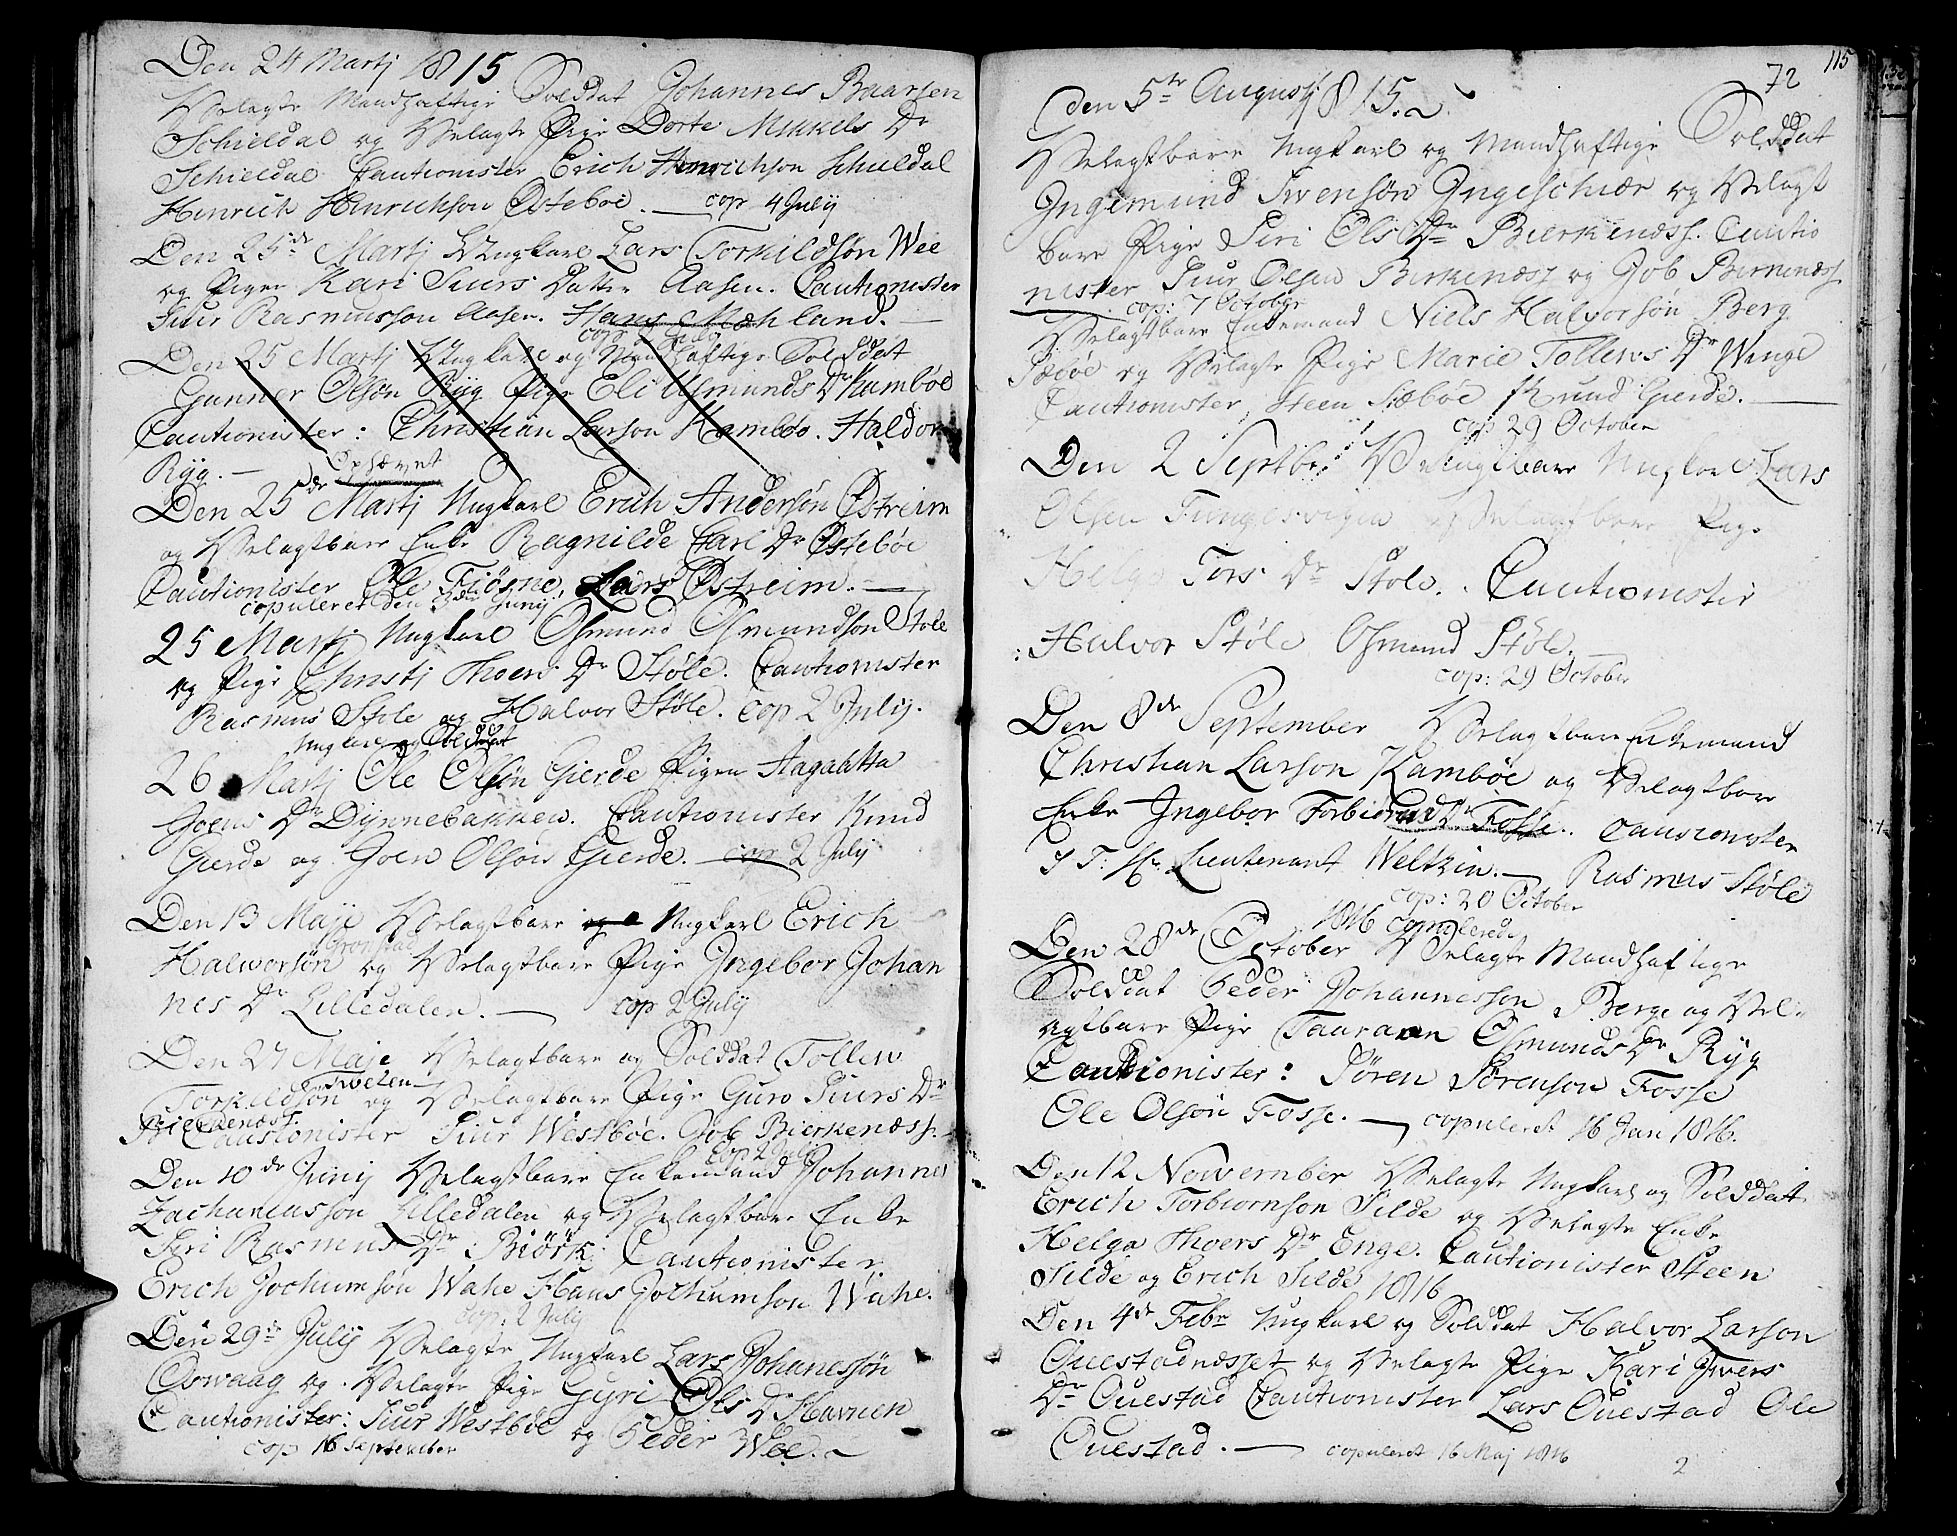 Den 24 Martj 1815
Velagte Mandhaftige Solddat Johannes Baarsen
Schieldal og Velagte Pige Dorte Mikkels Dr
Schieldal Cautionister Erich Henrichson Schieldal
Hinrich Hinrichson Østebøe. — cop 4 Julij
Den 25de Martj Ungkarl Lars Torkildsøn Wee
og Pigen Kari Siurs Datter Aasen. Cautionister
Siur Rasmusson Aasen. Hans Mæhland. —
Den 25 Martj Ungkarl og Mandhaftige Solddat
Gunner Olsøn Ryg Pige Eli Asmunds Dr Kambøe
Cautionister: Christian Larson Kambøe. Haldor
Ryg. — Ophævet
Den 25de Martj Ungkarl Erich Andersøn Østreim
og Velagtbare Enke Ragnilde Carl Dr Østebøe
Cautionister Ole Fiøsne, Lars Østreim. —
copuleret den Junij
25 Martj Ungkarl Osmund Osmundson Støle
og Pige Christj Thoers Dr Støle. Cautionister
Rasmus Støle og Halvor Støle. cop 2 Julij.
Ungkarl og Solddat
26 Martj Ole Olsøn Gierde Pigen Aagahtta
Joens Dr Dynnebakken. Cautionister Knud
Gierde og Joen Olsøn Gierde. — cop 2 Julij
Den 13 Maje Velagtbare Ungkarl Erich
Grønstad
Halworsøn og Velagtbare Pige Ingebor Johan
nes Dr Lilledalen. — cop 2 Julij
Den 27 Maje Velagtbare og Solddat Tollew
Tweten
Torkildsøn og Velagtbare Pige Guro Siurs Dr
Bierkenæss.
Cautionister Siur Westbøe. Job Bierkenæss.
cop 2 Julij
Den 10de Junij Velagtbare Enkemand Johannes
Zachariasson Lilledalen og Velagtbare Enke
Siri Rasmus Dr Biørk Cautionister
Erich Jochumson Wahe Hans Jochumson Wahe.
cop: 2 Julij
Den 29de Julij Velagte Ungkarl Lars Johanessøn
Oswaag og Velagte Pige Gyri Ols Dr Havnen
Cautionister: Siur Westbøe og Peder Wee.
cop 16 September
72 115
den 5te Augusti 1815.
Velagtbare Ungkarl og Mandhaftige Solddat
Ingemund Iwensøn Ingeschiær og Velagt
bare Pige Siri Ols Dr Bierkenæss. Cautio
nister Siur Olsen Birkenæss og Job Birkenæss
cop: 7 October
Velagtbare Enkemand Niels Halvorsøn Berg
Siøe og Velagte Pige Marie Tollews Dr Winge
Cautionister, Steen Siæbøe Knud Gierde. —
cop 29 October
Den 2 Septbr Velagtbare Ungkarl Lars
Olsen Tungesvigen og Velagtbare Pige
Helge Tors Dr Støle. Cautionister
Halvor Støle Osmund Støle.
cop: 29 October
Den 8de September Velagtbare Enkemand
Christian Larson Kambøe og Velagtbare
Enke Ingebor Torbiørns Dr Fosse. Cautionister
S T: Hr Lieutenant Weltzin. — Rasmus Støle
cop: 20 October
1816 copulerede
Den 28de October Velagte Mandhaftige
Solddat Peder Johannesson Berge og Vel
agtbare Pige Taaraan Osmunds Dr Ryg
Cautionister: Søren Sørenson Fosse
Ole Olsøn Fosse. — copuleret 16 Jan 1816.
Den 12 Nowember Velagte Ungkarl og Solddat
Erich Torbiørnson Silde og Velagte Enke
Helga Thoers Dr Enge. Cautionister Steen
Silde og Erich Silde 1816
Den 4de Febr Ungkarl og Solddat Halvor Larson
Ouestadnæsset og Velagte Pige Kari Iwers
Dr Ouestad Cautionister Lars Ouestad Ole
Ouestad. — copuleret 16 Maj 1816
2